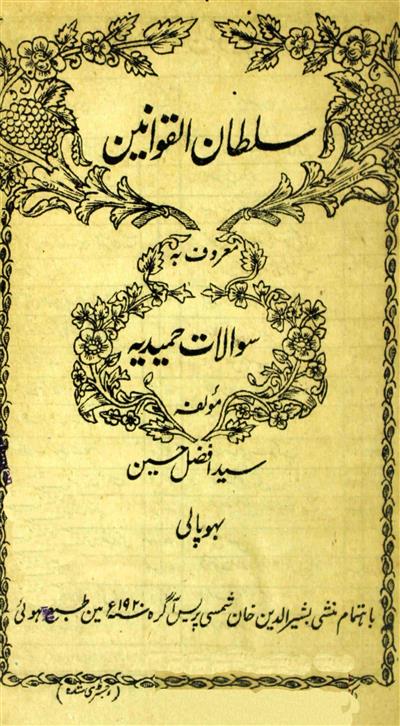 سلطان القوانین
معروف بہ
سوالات حمیدیہ
مؤلفہ
سید افضل حسین
بھوپالی
باہتمام منشی بشیر الدین خان شمسی پریس آگرہ سنہ ۱۹۲۰ع مین طبع ہوئی
(رجسٹری شدہ)